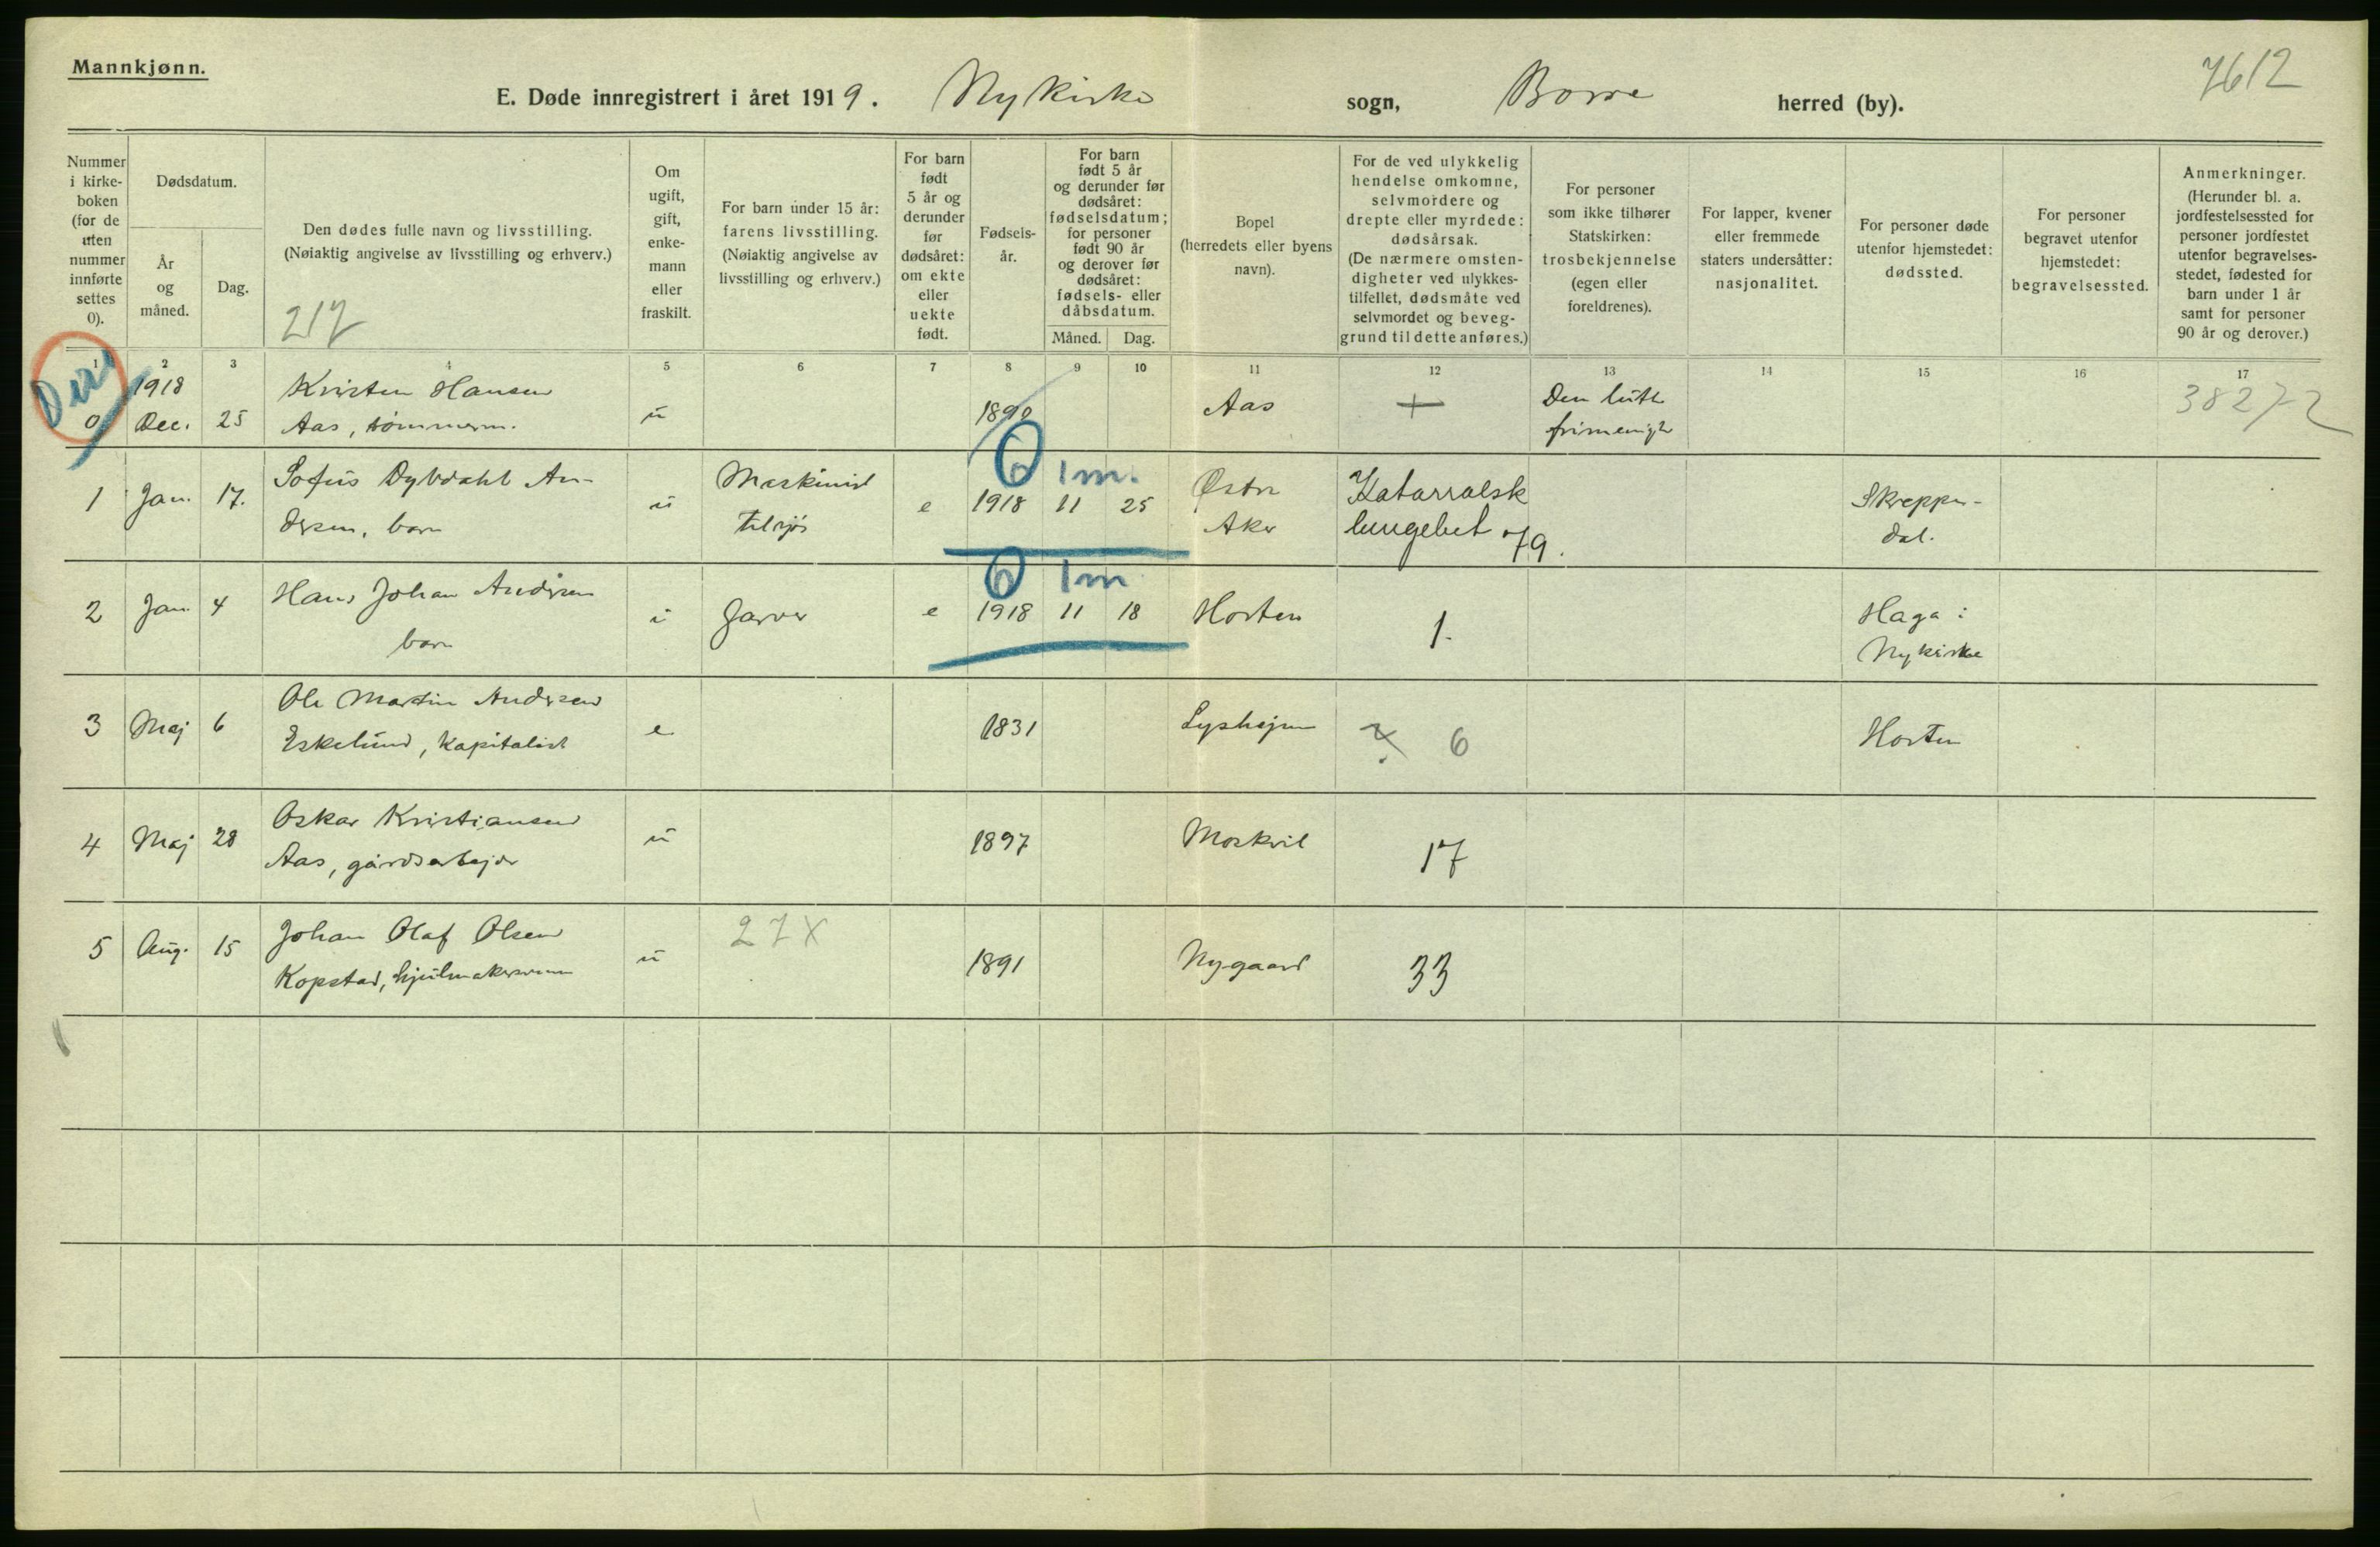 Mannkjønn.
7612
E. Døde innregistrert i året 1919. Nykirke sogn, Borre herred (by).
Nummer i kirke-boken (for de uten nummer innførte settes 0).
Dødsdatum.
År og måned.
Dag.
Den dødes fulle navn og livsstilling.
(Nøiaktig angivelse av livsstilling og erhverv.)
217
Om ugift, gift, enke-mann eller fraskilt.
For barn under 15 år: farens livsstilling.
(Nøiaktig angivelse av livsstilling og erhverv.)
For barn født 5 år og derunder før dødsåret: om ekte eller uekte født.
Fødsels-år.
For barn født 5 år og derunder før dødsåret: fødselsdatum; for personer født 90 år og derover før dødsåret: fødsels- eller dåbsdatum.
Måned. Dag.
Bopel (herredets eller byens navn).
For de ved ulykkelig hendelse omkomne, selvmordere og drepte eller myrdede: dødsårsak.
(De nærmere omsten-digheter ved ulykkes-tilfellet, dødsmåte ved selvmordet og beveg-grund til dette anføres.)
For personer som ikke tilhører Statskirken: trosbekjennelse (egen eller foreldrenes).
For lapper, kvener eller fremmede staters undersåtter: nasjonalitet.
For personer døde utenfor hjemstedet: dødssted.
For personer begravet utenfor hjemstedet: begravelsessted.
Anmerkninger.
(Herunder bl. a. jordfestelsessted for personer jordfestet utenfor begravelses-stedet, fødested for barn under 1 år samt for personer 90 år og derover.)
1 2 3 4 5 6 7 8 9 10 11 12 13 14 15 16 17
1918 Kristen Hansen Den luth 38272
0 Dec. 25 Aas, tømmerm. u 1892 Aas + frimenigh
0 1 m.
Sofus Dybdahl An- Maskinist Østre Katarralsk Skreppe-
1 Jan. 17. dersen, barn u tilsjøs e 1918 11 25 Aker lungebet 79. dal.
0 1 m
2 Jan. 4 Hans Johan Andersen u Garver e 1918 11 18 Horten 1. Haga i
barn Nykirke
3 Maj 6 Ole Martin Andersen e 1831 6 Horten
Eskelund, Kapitalist
4 Maj 28 Oskar Kristiansen u 1897 Moskvil 17
Aas, gårdsarbejder
5 Aug. 15 Johan Olaf Olsen u 27 X 1891 Nygaard 33
Kopstad, hjulmakersvenn